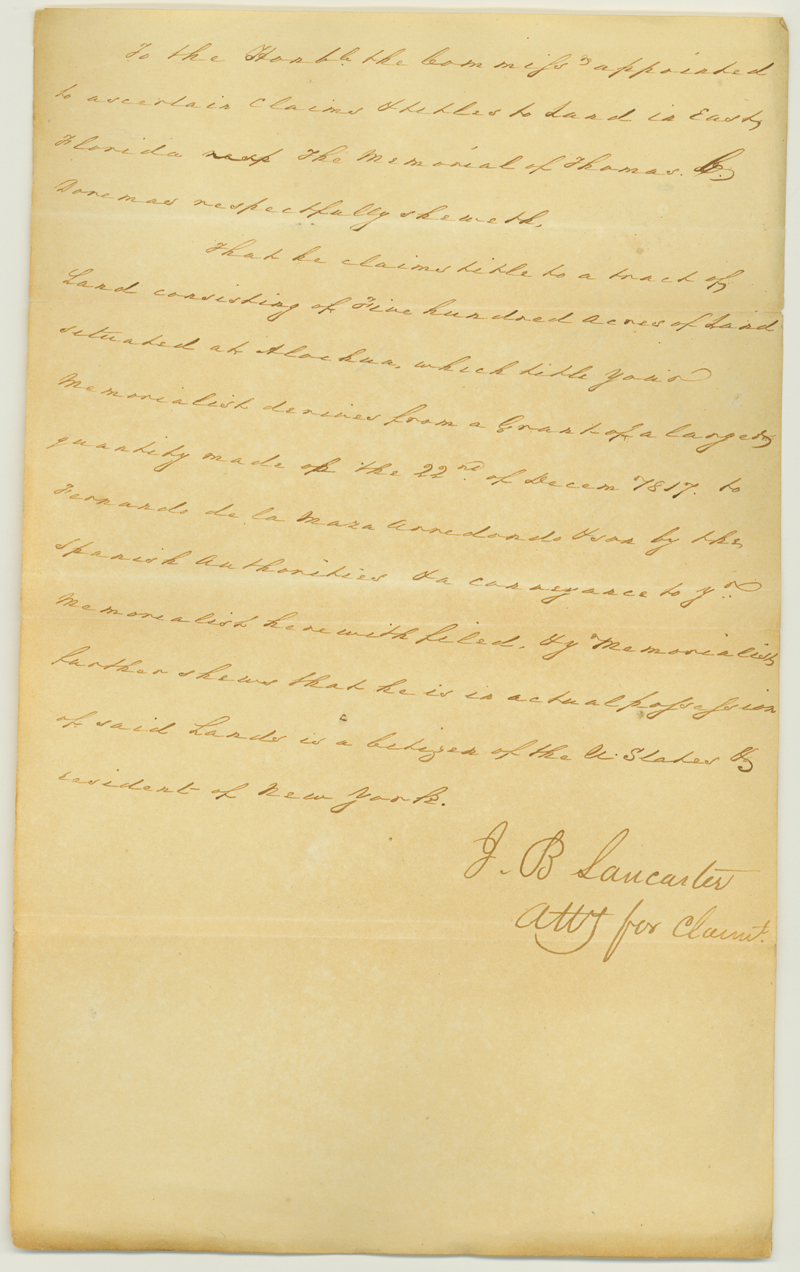 To the Honble. the Commissrs appointed
to ascertain Claims & titles to Land in East
Florida resp The Memorial of Thomas. C.
Doremas respectfully sheweth,
That he claims title to a tract of
Land consisting of Five hundred Acres of Land
situated at Alochua, which title your
Memorialist derives from a Grant of a larger
quantity made of the 22nd. of Decem 1817. to
Fernando de la Maza Arredondo & son by the
Spanish Authorities & a conveyance to yr.
Memorialist herewith filed, & y Memorialist
further shews that he is in actual possession
of said Lands is a Citizen of the U. States &
resident of New York.
J. B Lancaster
Atty for Claimt.